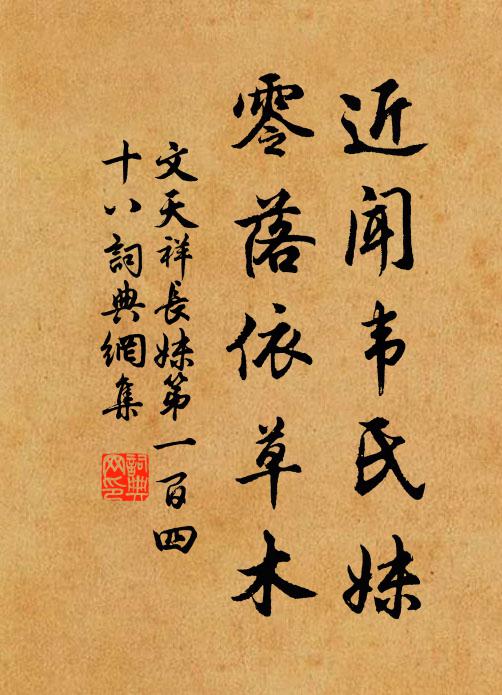 近闻韦氏妹
零落依草木
文天祥長妹第一百四
十八詞典網集
詞典
网印